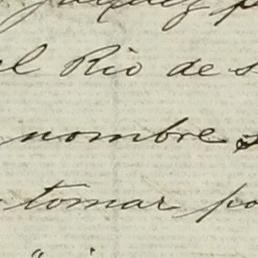 el Rio de s
nombre s
tomar po